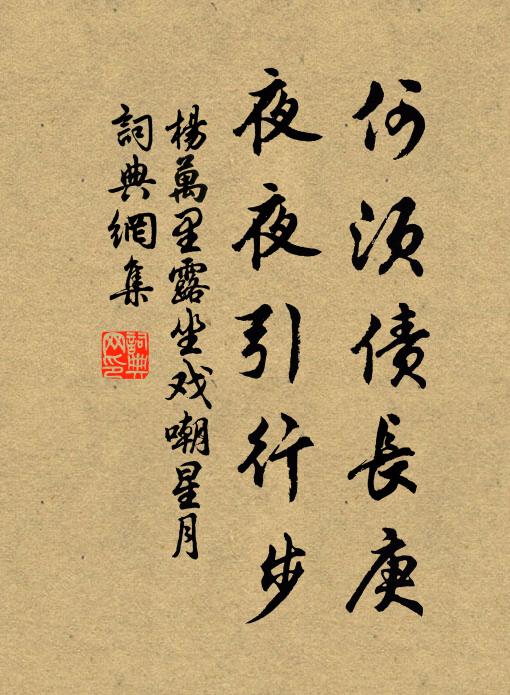 何須債長庚
夜夜引行步
楊萬里露坐戏嘲星月
詞典網集
詞典网印